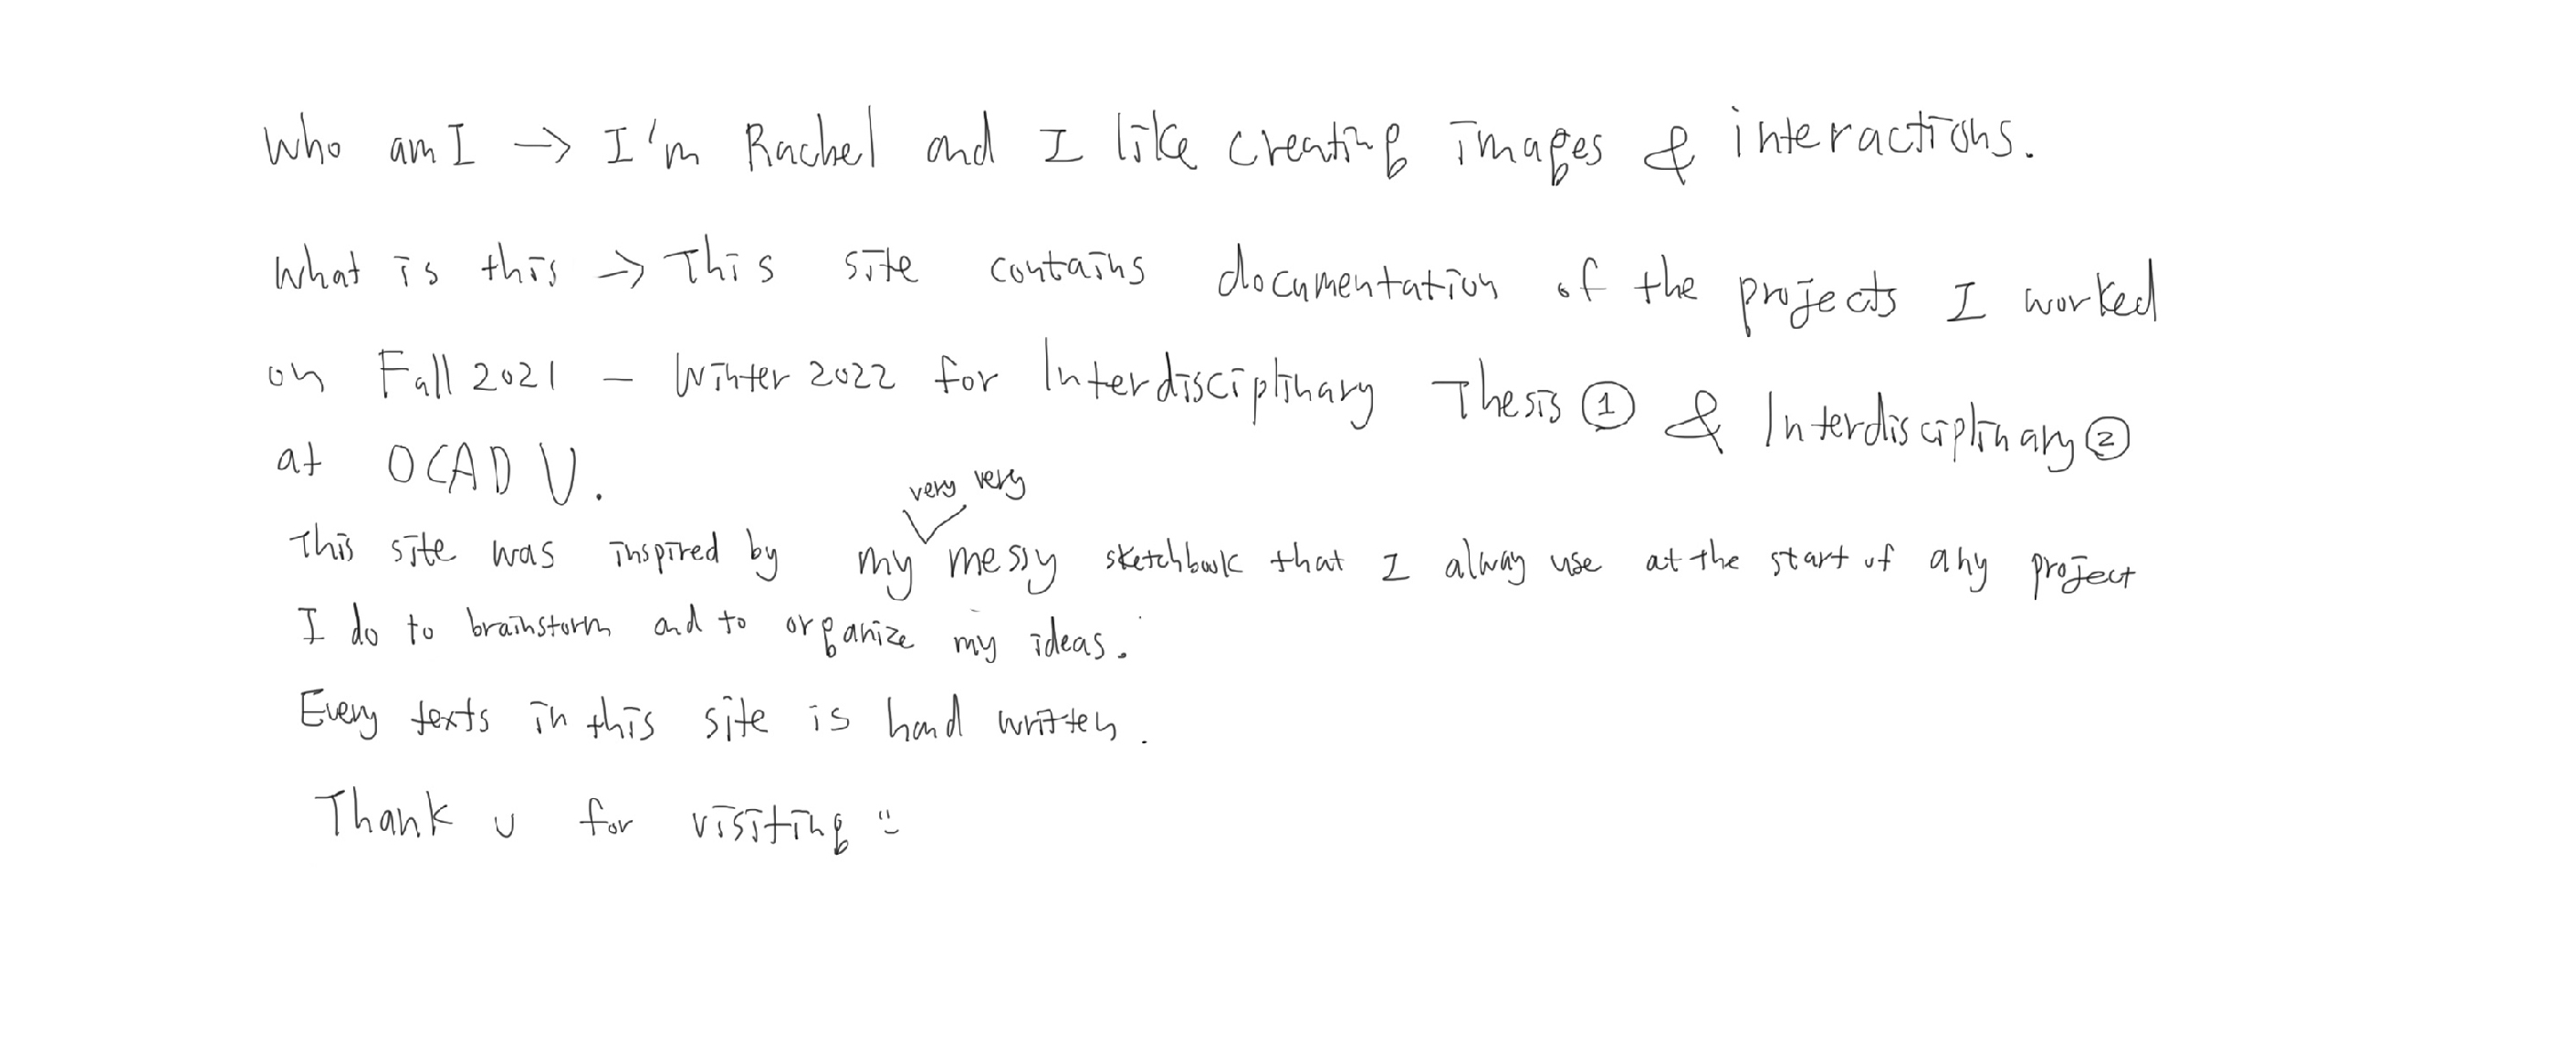 Who am I → I'm Rachel and I like creating images & interactions.
What is this → This site contains documentation of the projects I worked
on Fall 2021 – Winter 2022 for Interdisciplinary Thesis ① & Interdisciplinary ②
at OCAD U.
very very
This site was inspired by my messy sketchbook that I alway use at the start of any project
I do to brainstorm and to organize my ideas.
Every texts in this site is hand written.
Thank u for visiting ü